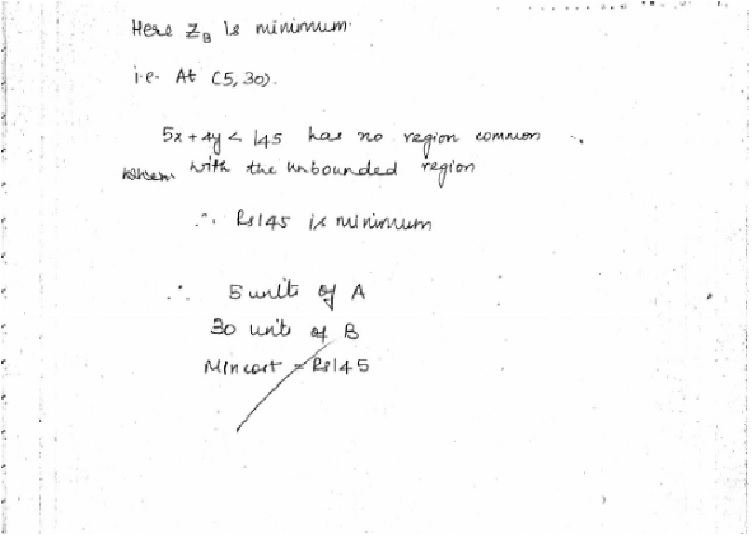 Here Z_B is minimum.
i.e. At (5, 30).
5x + 4y < 145 has no region common
with the unbounded region
∴ Rs145 is minimum
∴ 5 unit of A
30 unit of B
Min cost = Rs145